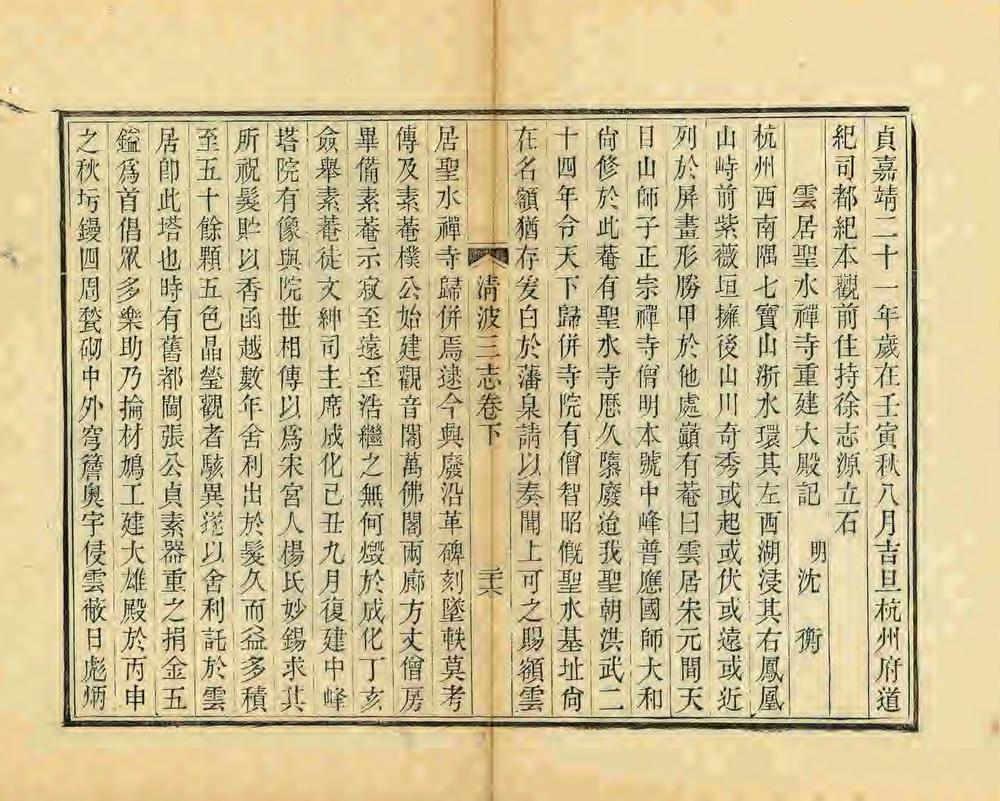 貞嘉靖二十一年歲在壬寅秋八月吉旦杭州府道
紀司都紀本觀前住持徐志源立石
雲居聖水禪寺重建大殿記 明沈衡
杭州西南隅七寶山浙水環其左西湖浸其右鳳凰
山峙前紫薇垣擁後山川奇秀或起或伏或遠或近
列於屏畫形勝甲於他處巔有菴曰雲居宋元間天
目山師子正宗禪寺僧明本號中峰普應國師大和
尙修於此菴有聖水寺歷久隳廢迨我聖朝洪武二
十四年令天下歸併寺院有僧智昭慨聖水基址尙
在名額猶存爰白於藩臬請以奏聞上可之賜額雲
清波三志卷下 三六
居聖水禪寺歸併焉逮今興廢沿革碑刻墜軼莫考
傳及素菴樸公始建觀音閣萬佛閣兩廊方丈僧房
畢備素菴示寂至遠至浩繼之無何燬於成化丁亥
僉舉素菴徒文紳司主席成化己丑九月復建中峰
塔院有像與院世相傳以爲宋宮人楊氏妙錫求其
所祝髮貯以香函越數年舍利出於髮久而益多積
至五十餘顆五色晶瑩觀者駭異遂以舍利託於雲
居卽此塔也時有舊都閫張公貞素器重之捐金五
鎰爲首倡眾多樂助乃掄材鳩工建大雄殿於丙申
之秋圬鏝四周甃砌中外穹簷奧宇侵雲蔽日彪炳